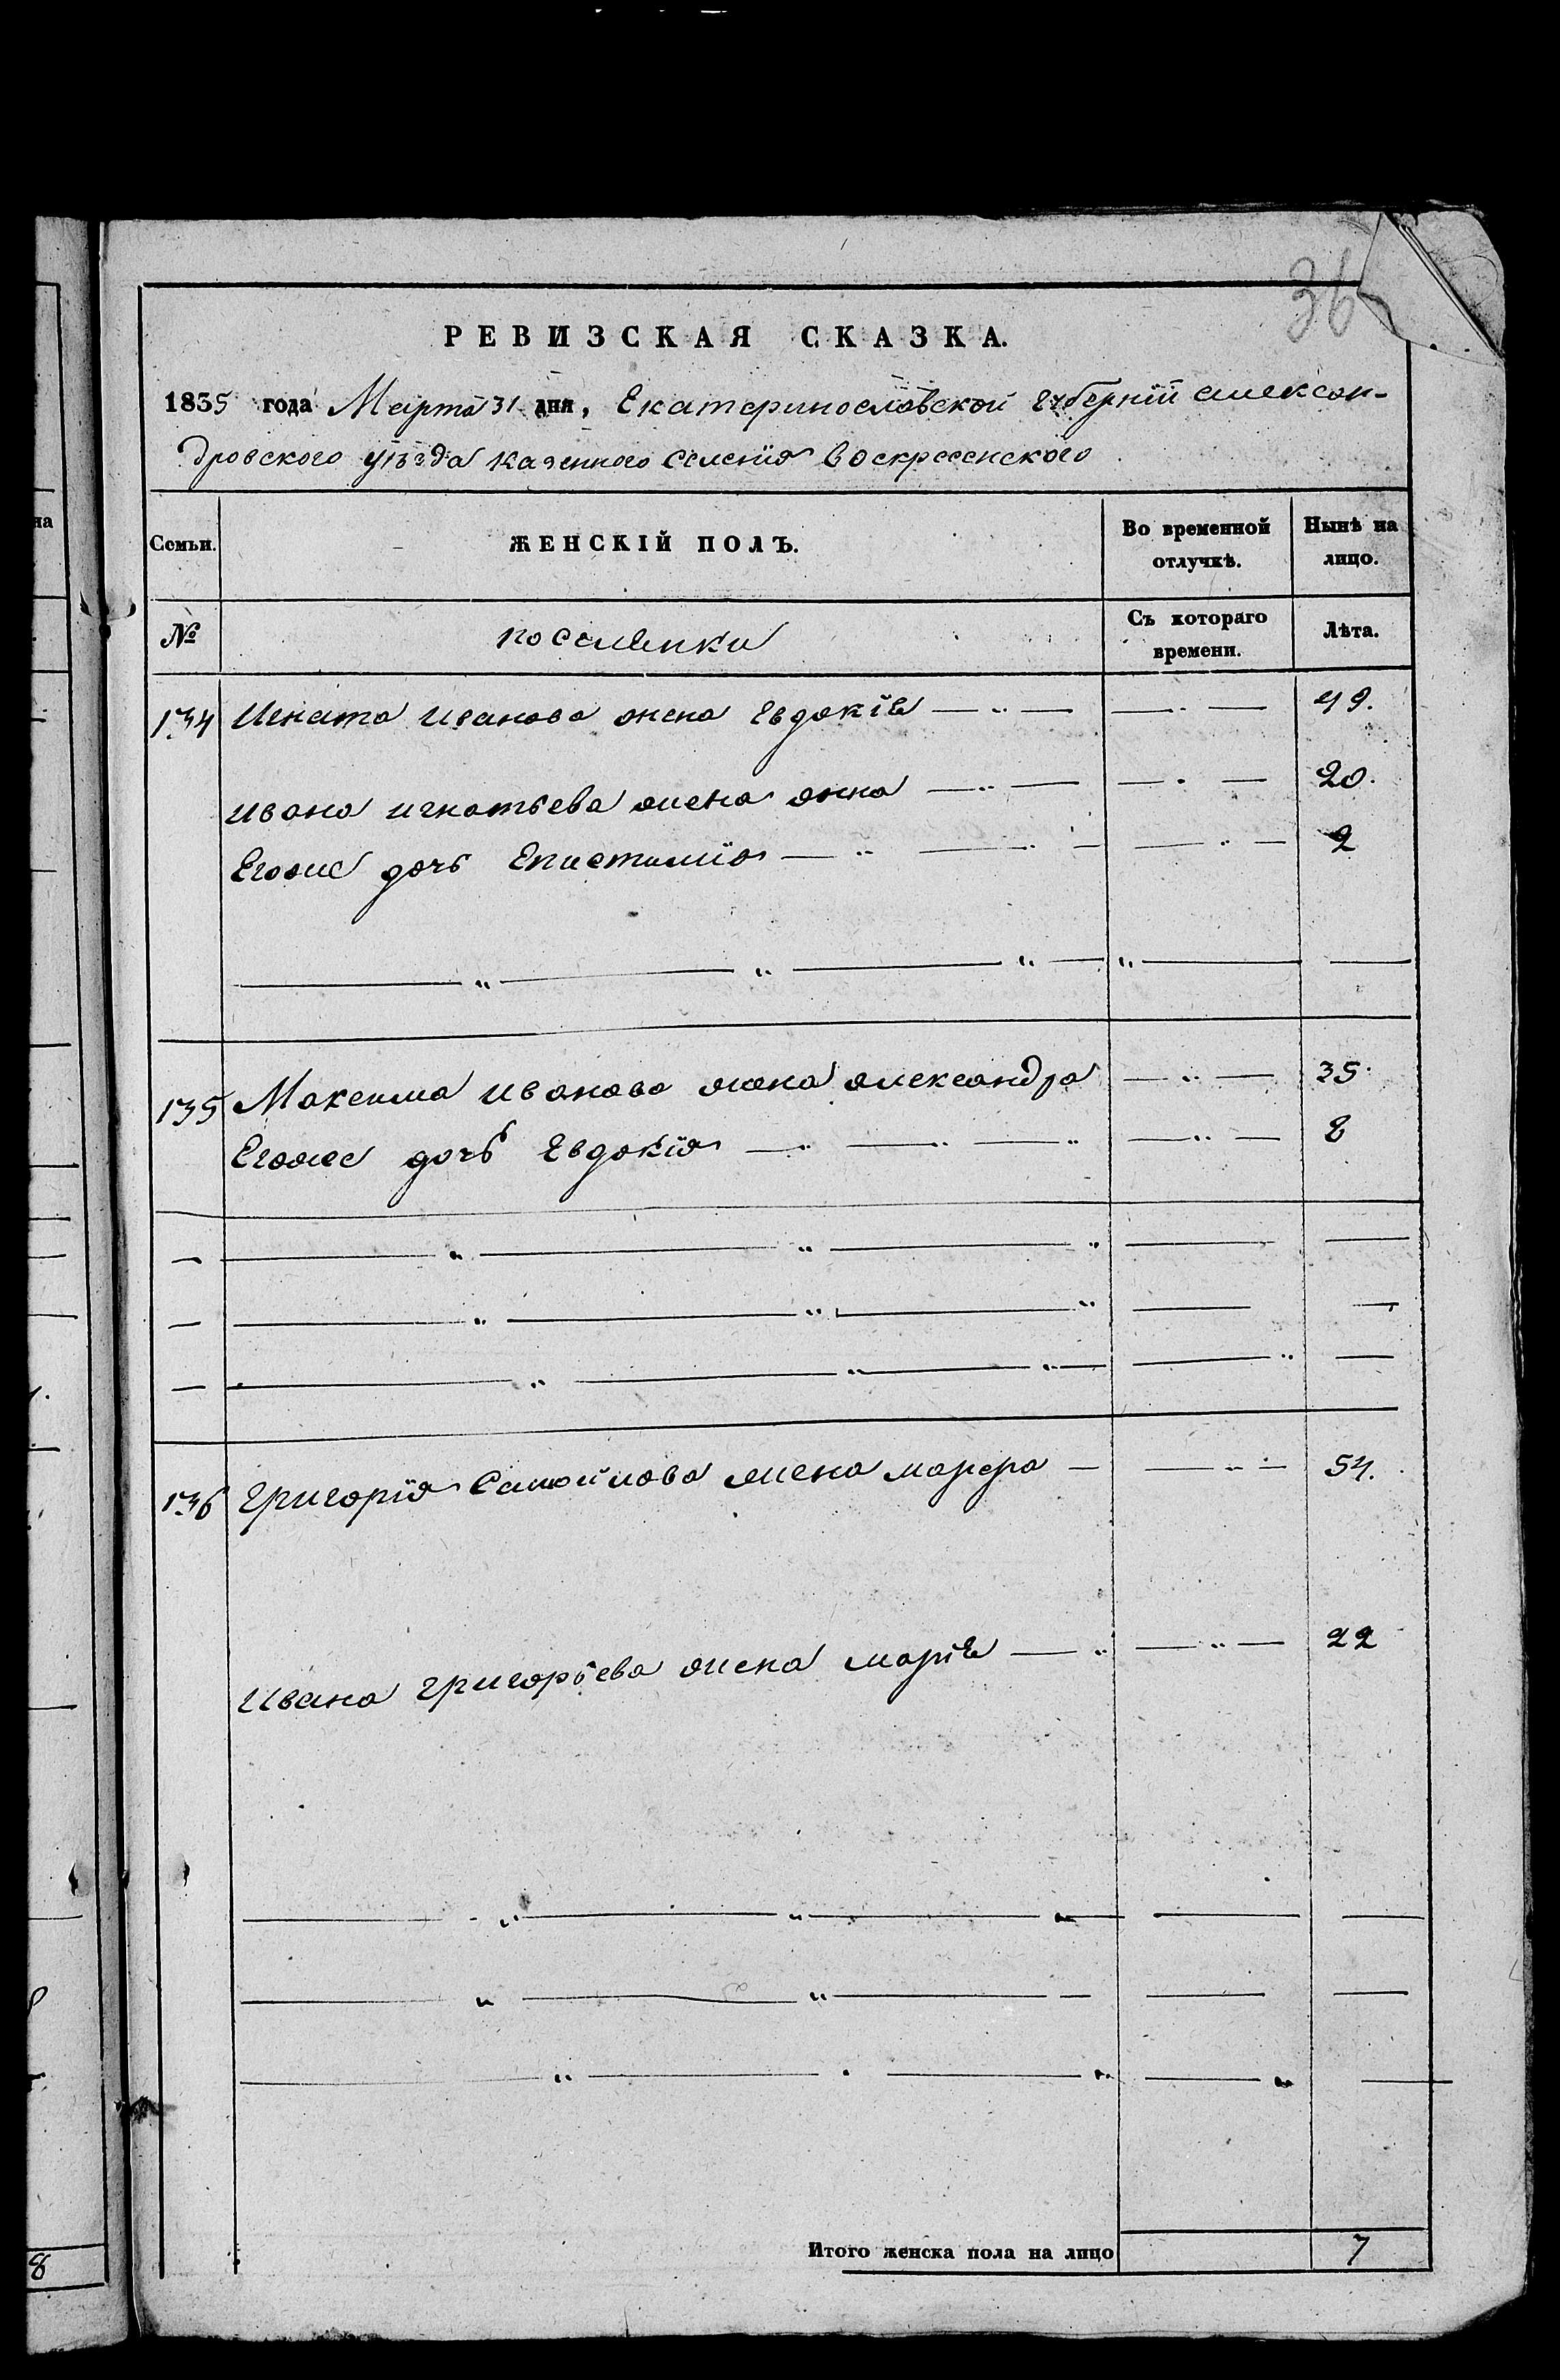 36
РЕВИЗСКАЯ СКАЗКА.
1835 года Марта 31 дня, Екатеринославской губернїи алексан-
дровского уѣзда казенного Селенїя воскресенского
Семьи. ЖЕНСКІЙ ПОЛЪ. Во временной отлучкѣ. Нынѣ на лицо.
№ поселенки Съ котораго времени. Лѣта.
134 Игната иванова жена Евдокїя 49.
ивана игнатьева жена анна 20.
Егоже дочь Епистимїя 2
135 Максима иванова жена александра 35.
Егоже дочь Евдокїя 8
136 григорїя Самойлова жена марфа 54.
ивана григорьева жена марїя 22
Итого женска пола на лицо 7
на
8